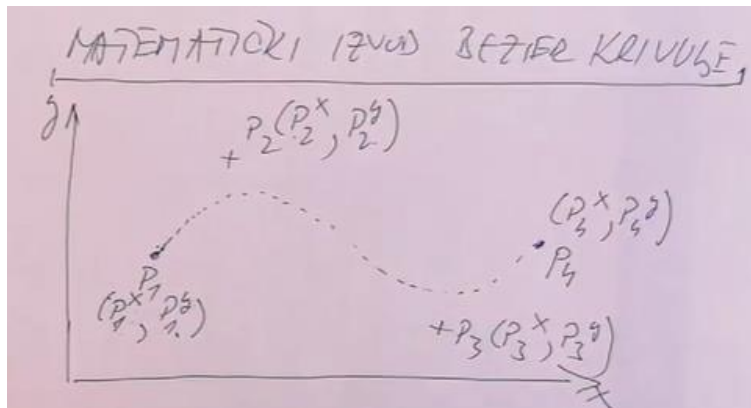 MATEMATIČKI IZVOD BEZIER KRIVULJE
y
P₂(P₂ˣ, P₂ʸ)
(P₄ˣ, P₄ʸ)
P₄
P₁
(P₁ˣ, P₁ʸ)
P₃(P₃ˣ, P₃ʸ)
x